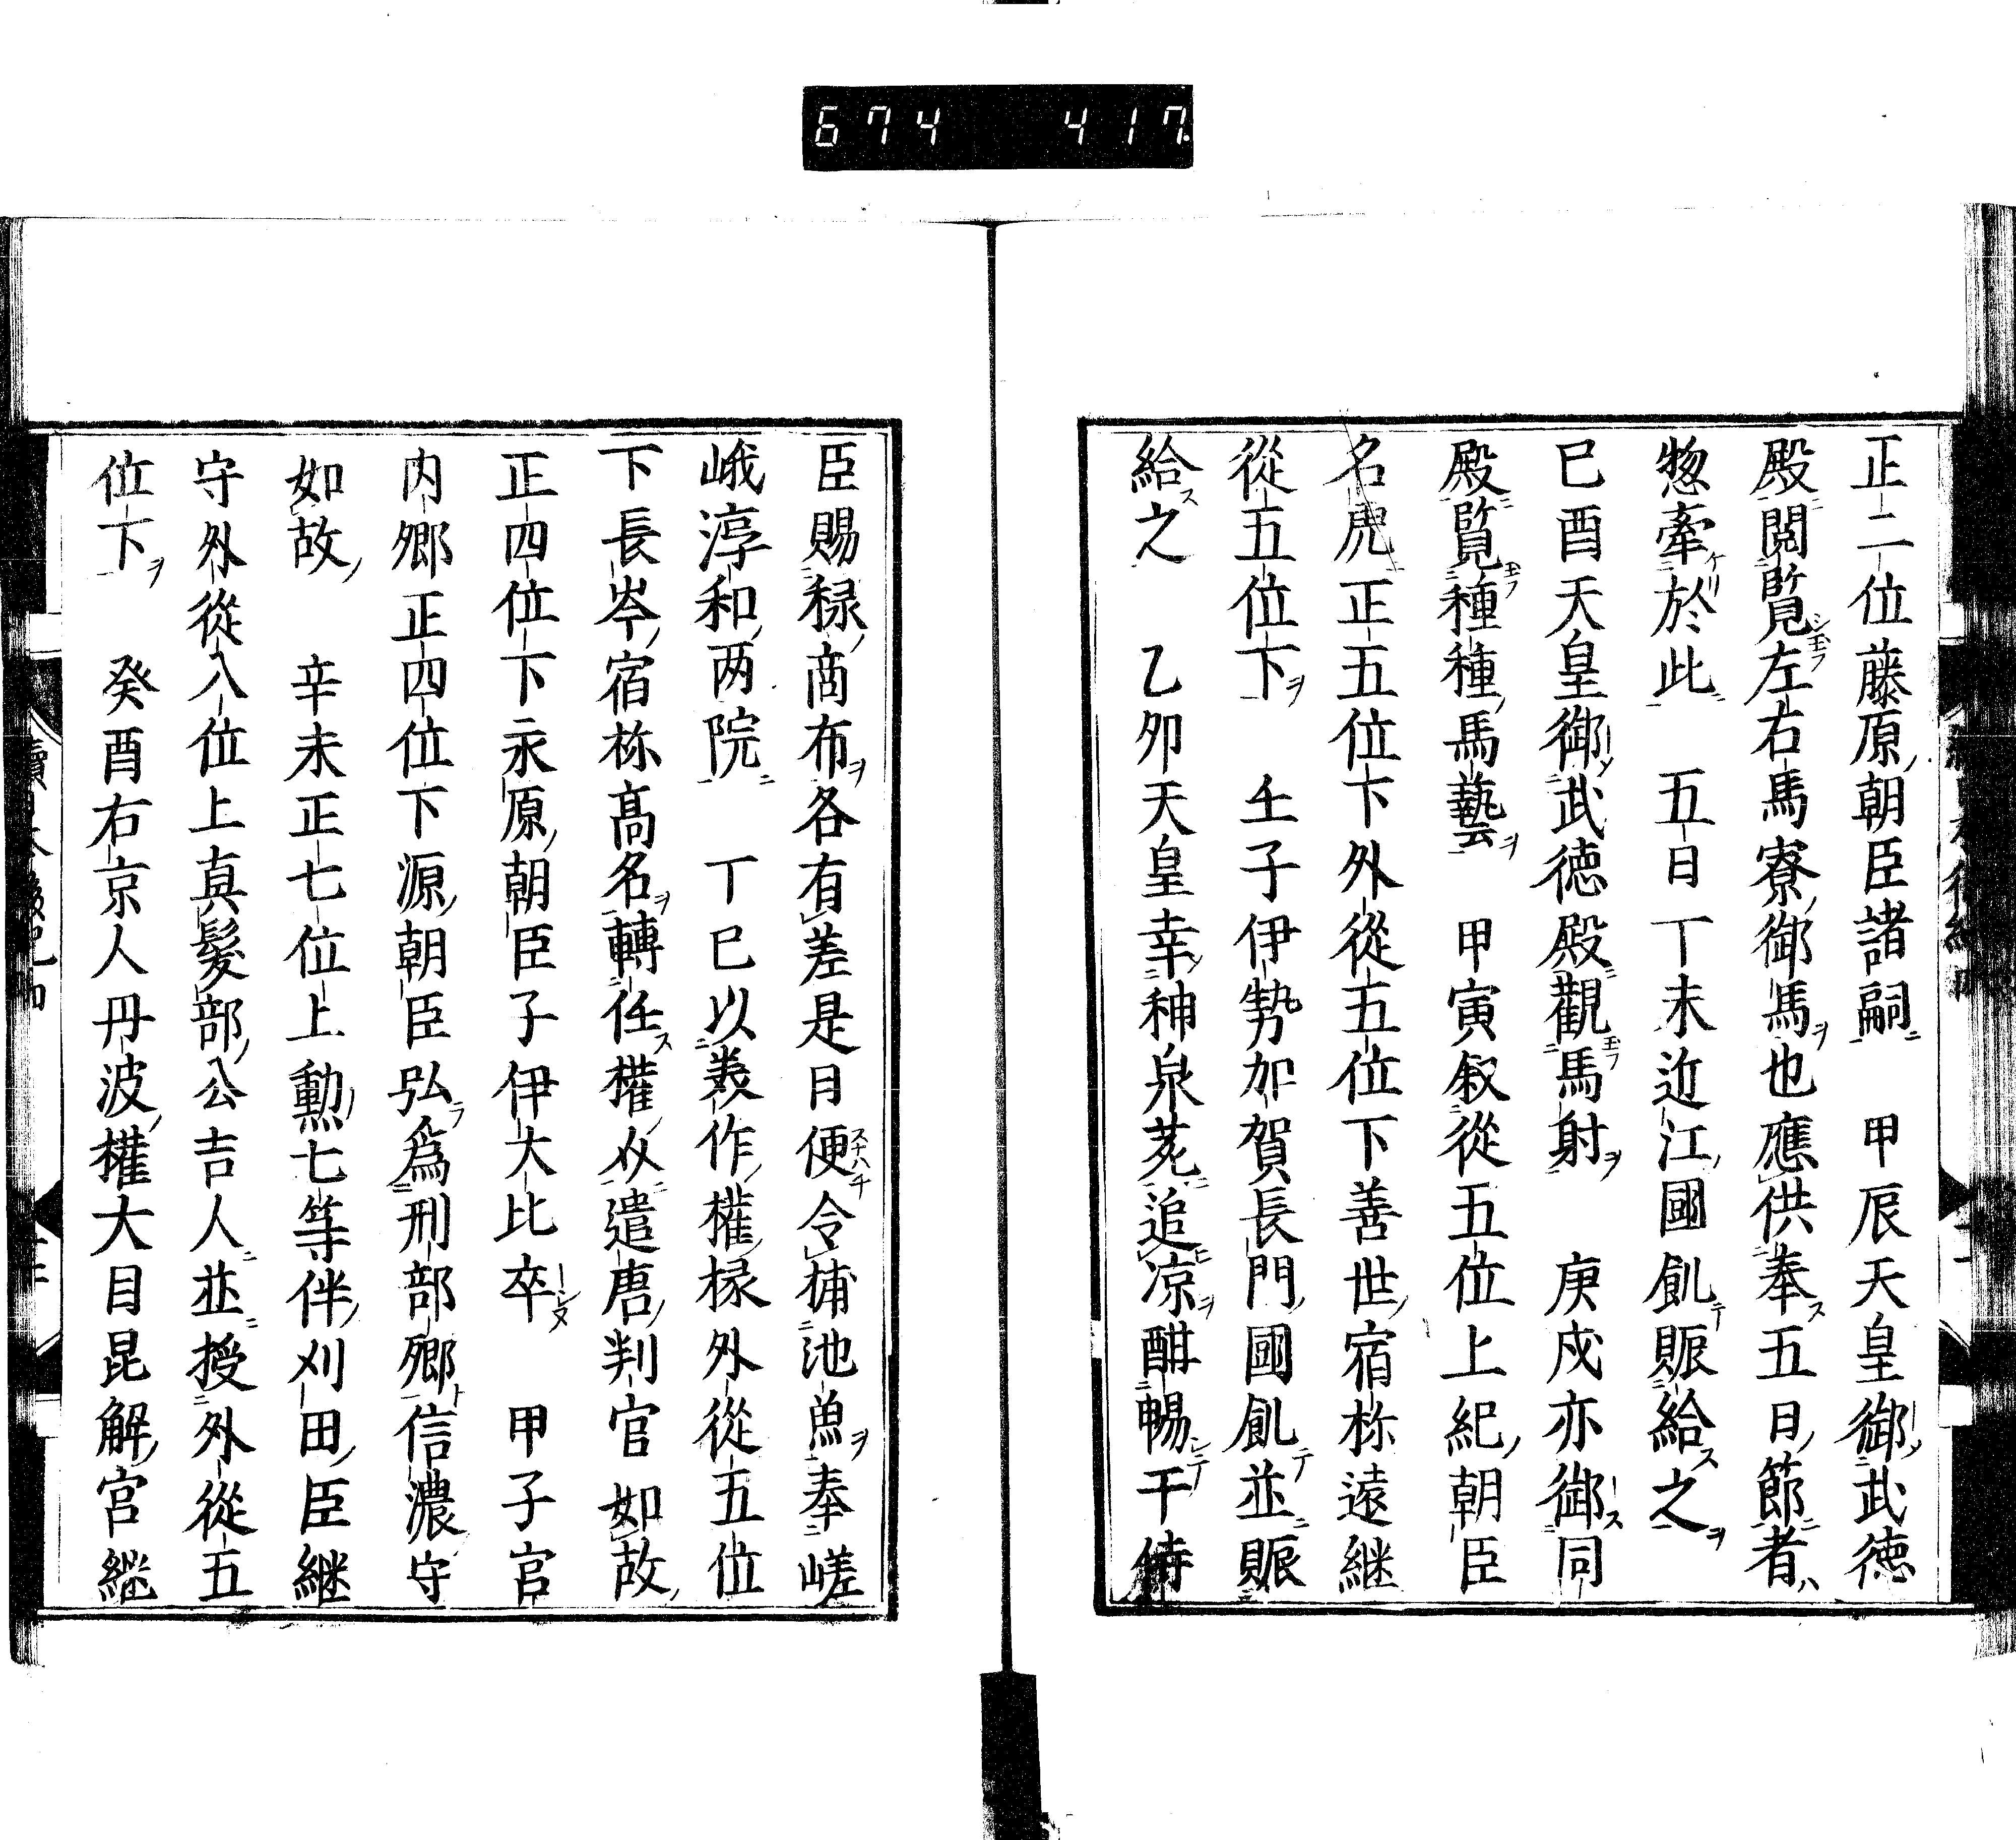 674 417
正二位藤原朝臣諸嗣　甲辰天皇御武徳
殿閲覧左右馬寮御馬也應供奉五日節者
惣牽於此　五日丁未近江國飢賑給之
已酉天皇御武徳殿觀馬射　庚戍亦御同
殿覧種種馬藝　甲寅叙從五位上紀朝臣
名虎正五位下外從五位下善世宿祢遠継
從五位下　壬子伊勢加賀長門國飢並賑
給之　乙夘天皇幸神泉苑追凉酣暢于時侍
臣賜祿商布各有差是日便令捕池魚奉嵯
峨淳和两院　丁巳以美作權掾外從五位
下長岑宿祢髙名轉任權以遣唐判官如故
正四位下永原朝臣子伊大比卒　甲子宫
内卿正四位下源朝臣弘爲刑部卿信濃守
如故　辛未正七位上勲七等伴刈田臣継
守外從八位上真髪部公吉人並授外從五
位下　癸酉右京人丹波權大目昆解宫継